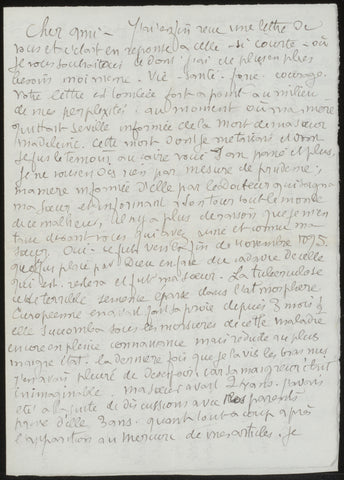 Cher ami - J'ai enfin reçu une lettre de
vous et c'était en réponse à celle - si courte - où
Je vous souhaitais ce dont j'ai de plus en plus
besoin moi même. Vie - Santé - force - courage.
Votre lettre est tombée fort à point au milieu
de mes perplexités : au moment où ma mère
quittant Séville informée de la mort de ma sœur
Madeleine. Cette mort dont je me taisais et dont
Je fus témoin au voici 1 an passé et plus.
Je ne vous en dis rien par mesure de prudence ;
ma mère informée d'elle par le docteur qui soigna
ma sœur et informant à son tour tout le monde
de ce malheur, il n'y a plus de raison que je m'en
taise devant vous qui avez aimé et connu ma
sœur. Oui - ce fut vers la fin de Novembre 1895.
que fus placé par Dieu en face du cadavre de celle
qui est - restera et fut ma sœur. La tuberculose
cette terrible semence éparse dans l'atmosphère
Européenne en avait fait sa proie depuis 3 mois &
elle succomba sous les morsures de cette maladie
encore en pleine connaissance mais réduite au plus
maigre état. La dernière fois que je la vis les bras nus
j'en avais pleuré de désespoir car sa maigreur était
inimaginable. Ma sœur avait 27 ans. J'avais
été à la suite de discussions avec mes parents
privé d'elle 3 ans. quand tout à coup après
l'apparition au Mercure de mes articles. Je